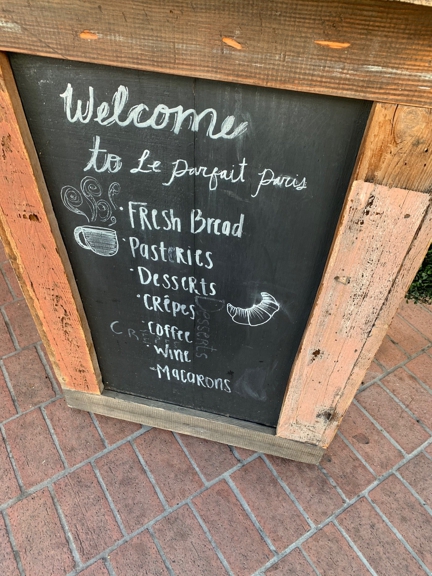 Welcome
to Le Parfait Paris
· FRESH Bread
· Pastries
· Desserts
· CRÊPES
· Coffee
· Wine
- Macarons
Desserts